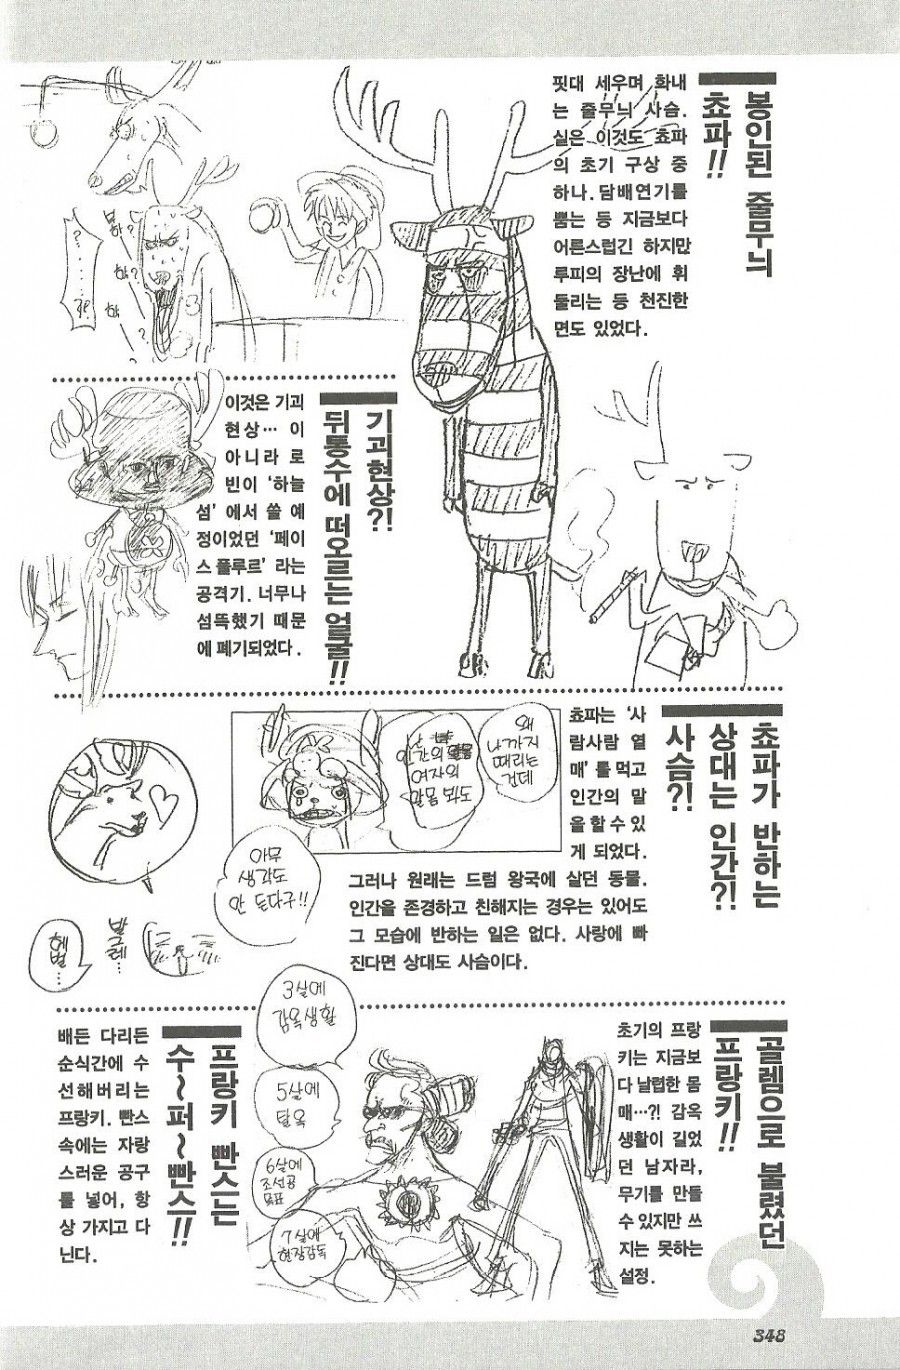 봉인된 줄무늬
쵸파!!
핏대 세우며 화내
는 줄무늬 사슴.
실은 이것도 쵸파
의 초기 구상 중
하나. 담배연기를
뿜는 등 지금보다
어른스럽긴 하지만
루피의 장난에 휘
둘리는 등 천진한
면도 있었다.
기괴현상?!
뒤통수에 떠오르는 얼굴!!
이것은 기괴
현상… 이
아니라 로
빈이 '하늘
섬'에서 쓸 예
정이었던 '페이
스 플루르' 라는
공격기. 너무나
섬뜩했기 때문
에 폐기되었다.
쵸파가 반하는
상대는 인간?!
사슴?!
쵸파는 '사
람사람 열
매'를 먹고
인간의 말
을 할 수 있
게 되었다.
그러나 원래는 드럼 왕국에 살던 동물.
인간을 존경하고 친해지는 경우는 있어도
그 모습에 반하는 일은 없다. 사랑에 빠
진다면 상대도 사슴이다.
왜
나까지
때리는
건데
난
인간의
여자의
알몸 봐도
아무
생각도
안 든다구!!
발그레…
헤벌…
골렘으로 불렸던
프랑키!!
초기의 프랑
키는 지금보
다 날렵한 몸
매…?! 감옥
생활이 길었
던 남자라,
무기를 만들
수 있지만 쓰
지는 못하는
설정.
3살에
감옥생활
5살에
탈옥
6살에
조선공
목표
7살에
현장감독
프랑키 빤스는
수~퍼~빤스!!
배든 다리든
순식간에 수
선해버리는
프랑키. 빤스
속에는 자랑
스러운 공구
를 넣어, 항
상 가지고 다
닌다.
348